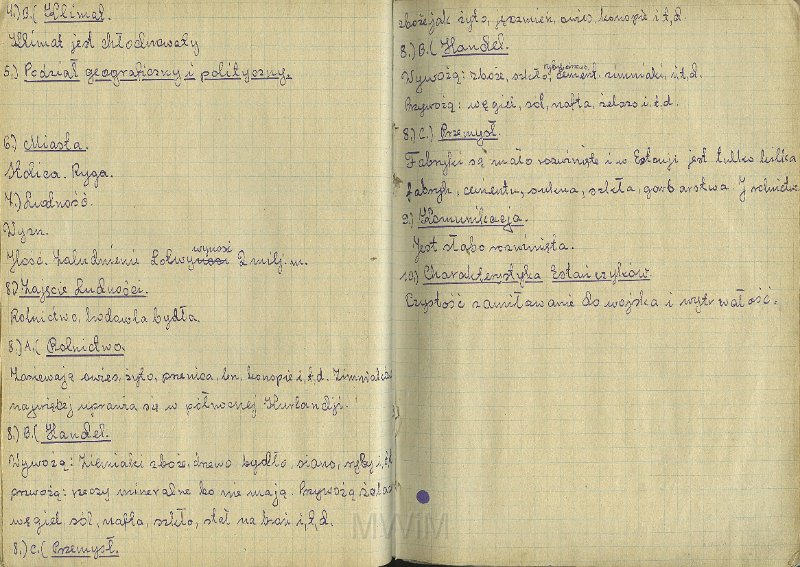 4.) B.( Klimat.
Klimat jest chłodnawaty
5.) Podział geograficzny i polityczny.
6.) Miasta.
Stolica. Ryga.
7.) Ludność.
Wyzn.
wynosi
Ilość. Zaludnienie Łotwy 2 milj. m.
8.) Zajęcie Ludności.
Rolnictwo, hodowla bydła.
8.) A.( Rolnictwo.
Zasiewają owies, żyto, przenica, len, konopie i, t, d. Zimniaków
najwięcej uprawia się w północnej Kurlandji.
8.) B.( Handel.
Wywożą: Ziemiaki zboże, drzewo bydło, siano, ryby i, t.d
przwożą: rzeczy mineralne bo nie mają. Przywożą żelazo
węgiel sól, nafta, szkło, stal na broń i, t, d.
8.) C.( Przemysł.
zboże jak żyto, jęczmień, owies, konopie i t, d.
8.) B.( Handel.
Wywożą: zboże, szkło, cement. zimniaki, i, t, d.
Przywożą: węgiel, sól, nafta, żelazo i. t. d.
8.) C.) Przemysł.
Fabryki są mało rozwinięte i w Estonji jest tulko kilka
fabryk, cementu, sukna, szkła, garbarstwa I rolnictwo
9.) Komunikacja.
Jest słabo rozwinięta.
10.) Charakterystyka Estończyków.
Czystość zamiławanie do wojska i wytrwałość.
MWIM